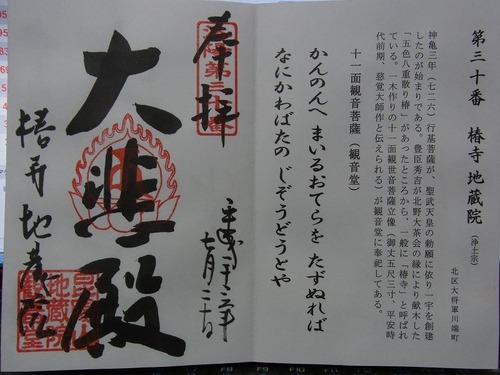 第三十番 椿寺 地蔵院 (浄土宗)
北区大将軍川端町
神亀三年(七二六)行基菩薩が、聖武天皇の勅願に依り一宇を創建
したのが始まりである。豊臣秀吉が北野大茶会の縁により献木した
「五色八重散り椿」があったところから、一般に「椿寺」と呼ばれ
ている。一木作りの十一面観世音菩薩立像(御丈五尺三寸、平安時
代前期、慈覚大師作と伝えられる)が観音堂に奉祀してある。
十一面観音菩薩(観音堂)
かんのんへ まいるおてらを たずぬれば
なにかわばたの じぞうどうとや
奉拝
大悲殿
椿寺 地蔵院
七月二十日
F8
F9
F10
F11